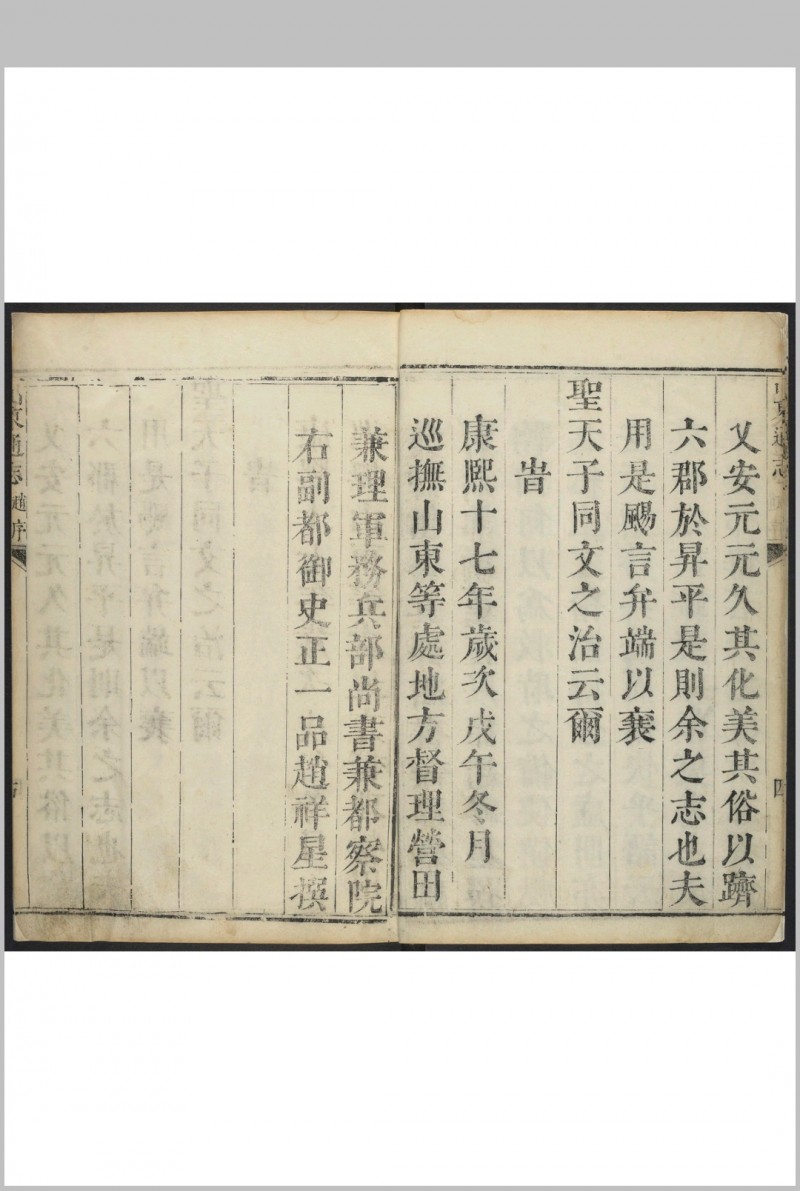 乂安元元久其化美其俗以躋
六郡於昇平是則余之志也夫
用是颺言弁端以襄
聖天子同文之治云爾
旹
康熙十七年歲次戊午冬月
巡撫山東等處地方督理營田
兼理軍務兵部尚書兼都察院
右副都御史正一品趙祥星撰
東通志
趙序